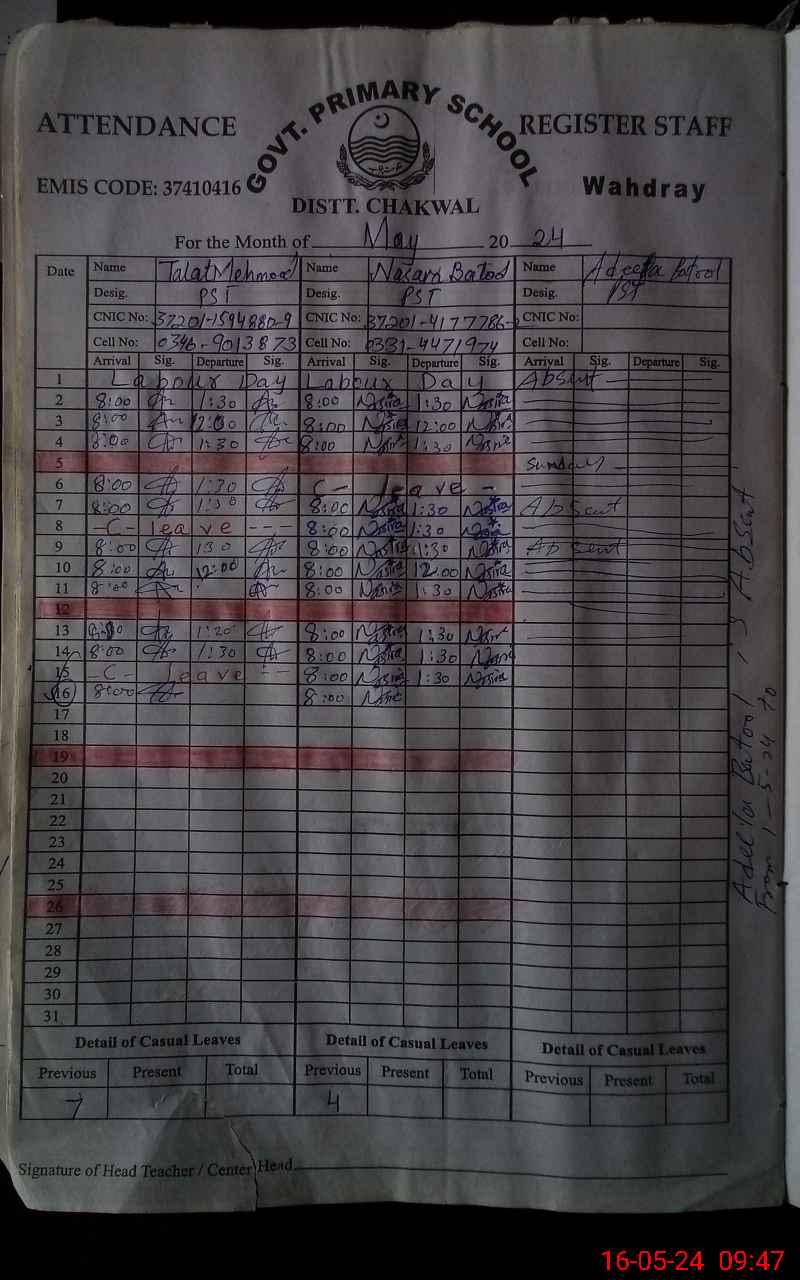 GOVT. PRIMARY SCHOOL
ATTENDANCE REGISTER STAFF
EMIS CODE: 37410416 Wahdray
DISTT. CHAKWAL
For the Month of May 20 24
Date Name Talat Mehmood Name Name Adeela Batool
Desig. PST Desig. PST Desig. PST
CNIC No: 37201-1594880-9 CNIC No: 37201-4177786- CNIC No:
Cell No: 0346-9013873 Cell No: 0331-4471974 Cell No:
Arrival Sig. Departure Sig. Arrival Sig. Departure Sig. Arrival Sig. Departure Sig.
1 Labour Day Labour Day Absent
2 8:00 1:30 8:00 Nasira 1:30 Nasira
3 8:00 12:00 8:00 Nasira 12:00 Nasira
4 8:00 1:30 8:00 Nasira 1:30 Nasira
5 Sunday
6 8:00 1:30 C- leave -
7 8:00 1:30 8:00 Nasira 1:30 Nasira Absent
8 -C- leave --- 8:00 Nasira 1:30 Nasira
9 8:00 130 8:00 Nasira 1:30 Nasira Absent
10 8:00 12:00 8:00 Nasira 12:00 Nasira
11 8:00 8:00 Nasira 1:30 Nasira
12
13 8:00 Nasira 1:30
14 8:00 1:30 8:00 Nasira 1:30
15 -C- leave -- 8:00 Nasira 1:30 Nasira
16 8:00 8:00
17
18
19
20
21
22
23
24
25
26
27
28
29
30
31
Detail of Casual Leaves Detail of Casual Leaves Detail of Casual Leaves
Previous Present Total Previous Present Total Previous Present Total
7 4
Signature of Head Teacher / Center Head
Batool is Absent
From 1-5-24 to
16-05-24 09:47